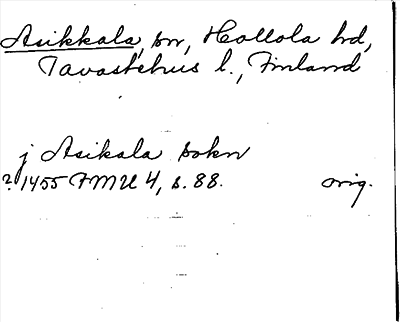 Asikkala, sn, Hollola hd,
Tavastehus l., Finland
j Asikala sokn
? 1455 FMU 4, s. 88. orig.